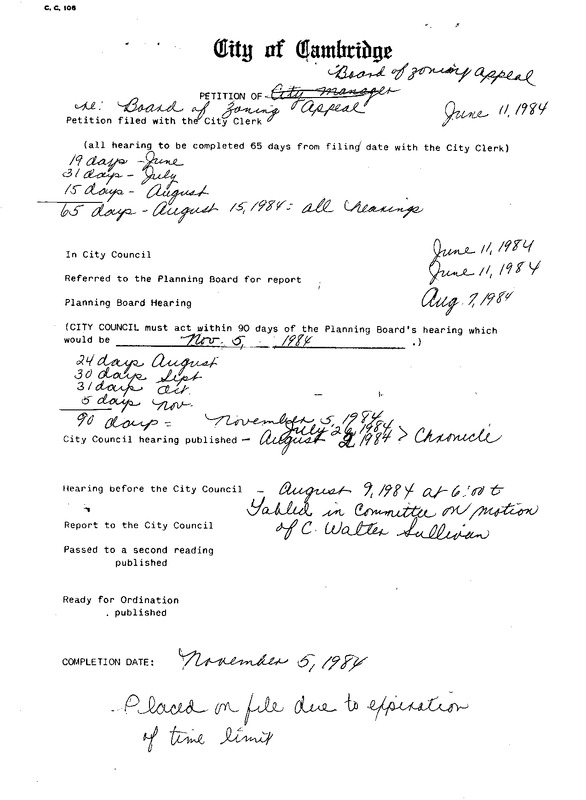 C. C. 106
City of Cambridge
Board of Zoning Appeal
PETITION OF City Manager
re: Board of Zoning Appeal June 11, 1984
Petition filed with the City Clerk
(all hearing to be completed 65 days from filing date with the City Clerk)
19 days - June
31 days - July
15 days - August
65 days - August 15, 1984 = all hearings
In City Council June 11, 1984
Referred to the Planning Board for report June 11, 1984
Planning Board Hearing Aug. 7, 1984
(CITY COUNCIL must act within 90 days of the Planning Board's hearing which
would be Nov. 5, 1984 .)
24 days August
30 days Sept
31 days Oct.
5 days Nov.
90 days = November 5, 1984
July 26, 1984
City Council hearing published - August 2 1984 > Chronicle
Hearing before the City Council - August 9, 1984 at 6:00
Tabled in Committee on motion
Report to the City Council of C. Walter Sullivan
Passed to a second reading
published
Ready for Ordination
. published
COMPLETION DATE: November 5, 1984
Placed on file due to expiration
of time limit